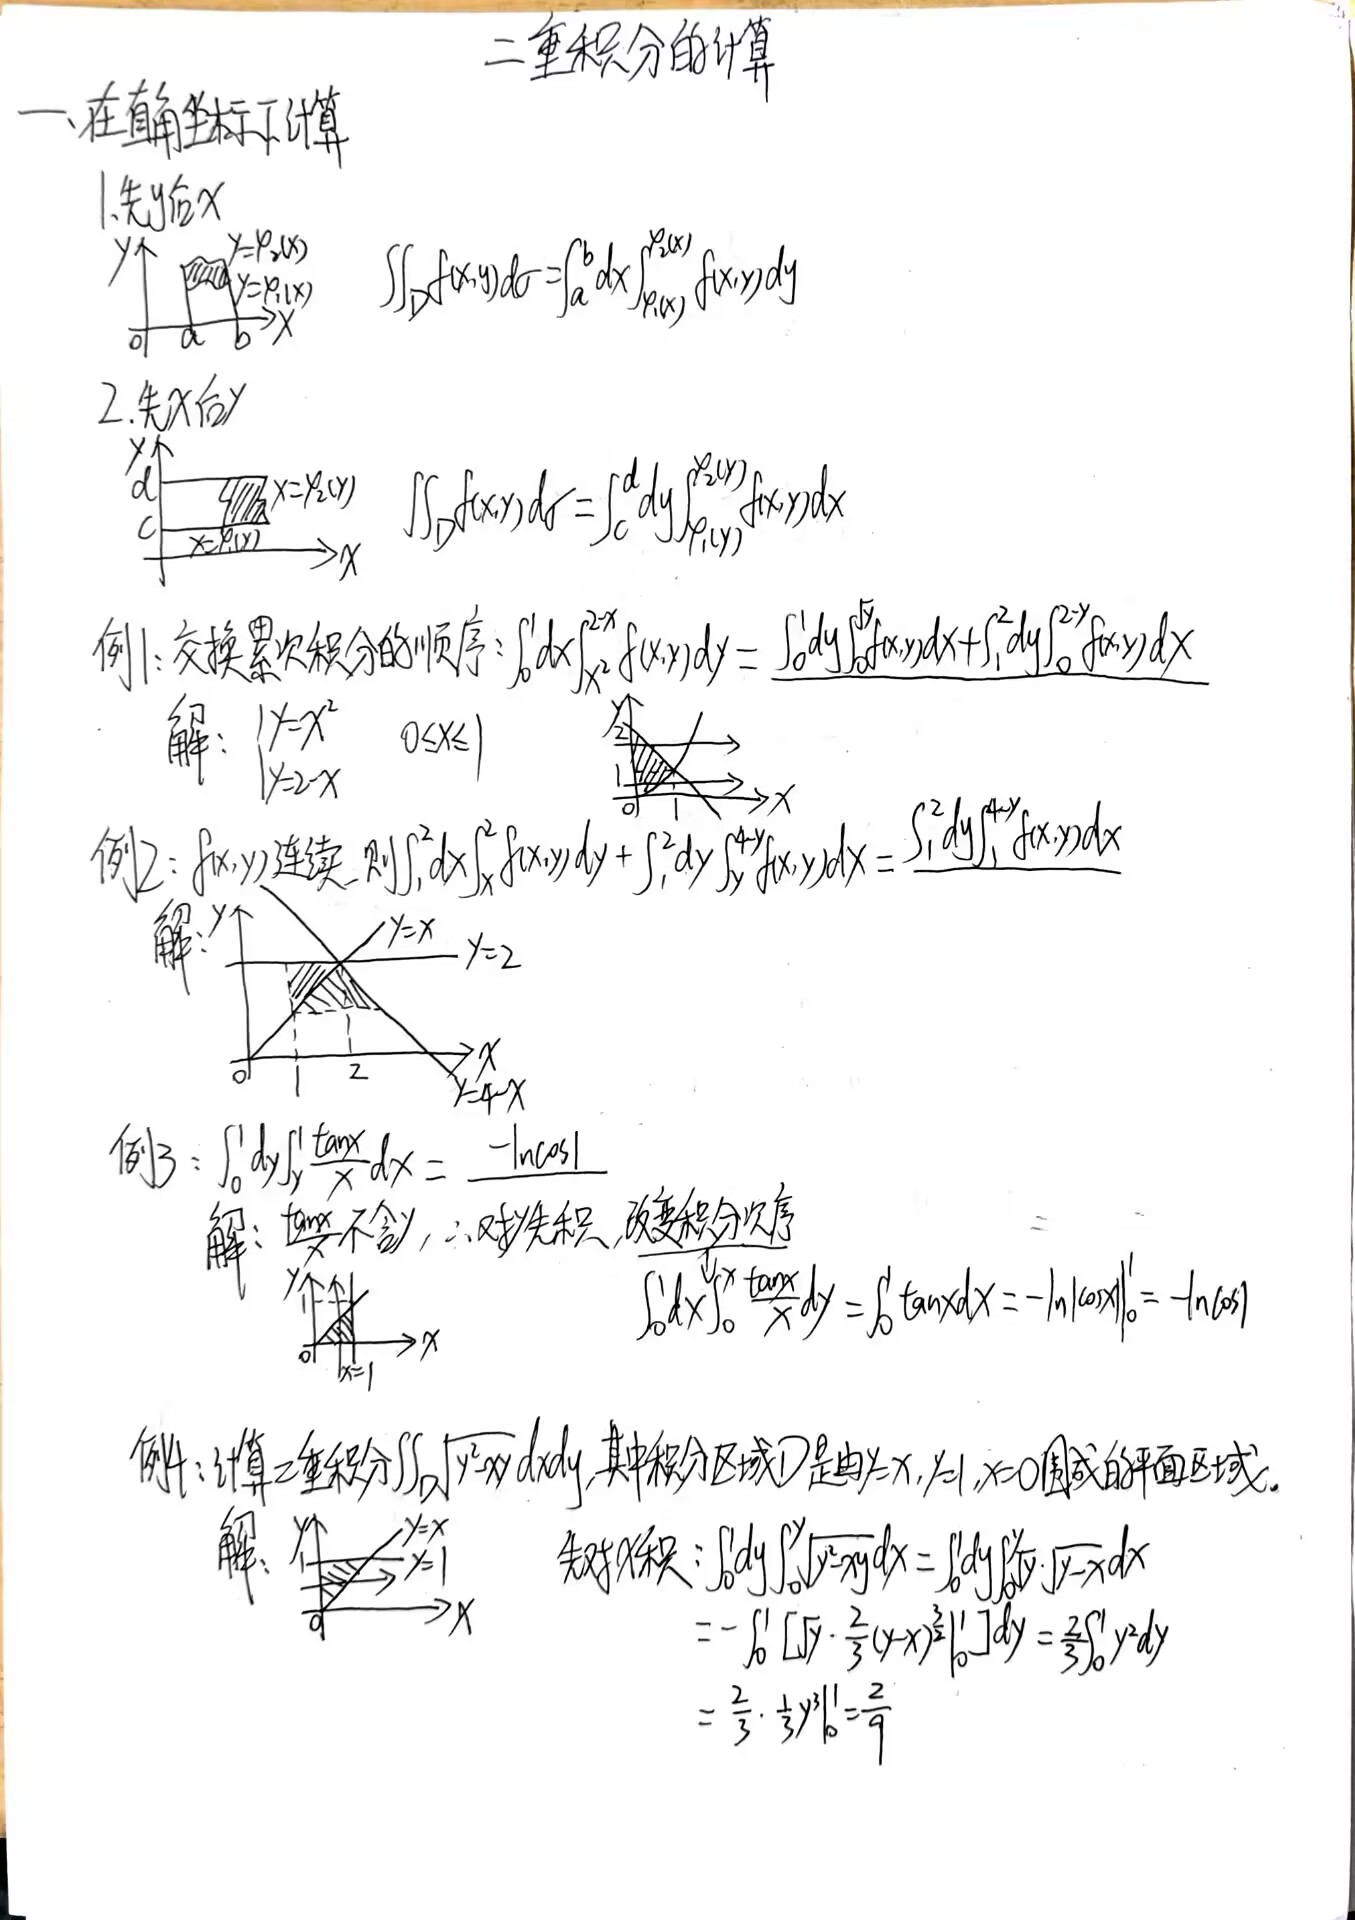 二重积分的计算
一、在直角坐标下计算
1.先y后x
y y=φ₂(x)
y=φ₁(x)
0 a b x
∬_D f(x,y)dσ=∫_a^b dx∫_{φ₁(x)}^{φ₂(x)} f(x,y)dy
2.先x后y
y
d x=φ₂(y)
c x=φ₁(y)
x
∬_D f(x,y)dσ=∫_c^d dy∫_{φ₁(y)}^{φ₂(y)} f(x,y)dx
例1:交换累次积分的顺序:∫_0^1 dx∫_{x²}^{2-x} f(x,y)dy=∫_0^1 dy∫_0^{√y} f(x,y)dx+∫_1^2 dy∫_0^{2-y} f(x,y)dx
解: {y=x² 0≤x≤1
y=2-x
y
2
1
0 1 x
例2:f(x,y)连续,则∫_1^2 dx∫_x^2 f(x,y)dy+∫_1^2 dy∫_y^{4-y} f(x,y)dx=∫_1^2 dy∫_1^{4-y} f(x,y)dx
解: y
y=x
y=2
0 1 2 x
y=4-x
例3:∫_0^1 dy∫_y^1 tanx/x dx=-lncos1
解:tanx/x不含y,∴对y先积,改变积分次序
∫_0^1 dx∫_0^x tanx/x dy=∫_0^1 tanxdx=-ln|cosx||_0^1=-lncos1
y
1
0 x=1 x
例4:计算二重积分∬_D √(y²-xy)dxdy,其中积分区域D是由y=x,y=1,x=0围成的平面区域.
解: y y=x
1 y=1
0 x
先对x积:∫_0^1 dy∫_0^y √(y²-xy)dx=∫_0^1 dy∫_0^y √y·√(y-x)dx
=-∫_0^1 [√y·2/3(y-x)^{3/2}|_0^1]dy=2/3∫_0^1 y²dy
=2/3·1/3y³|_0^1=2/9